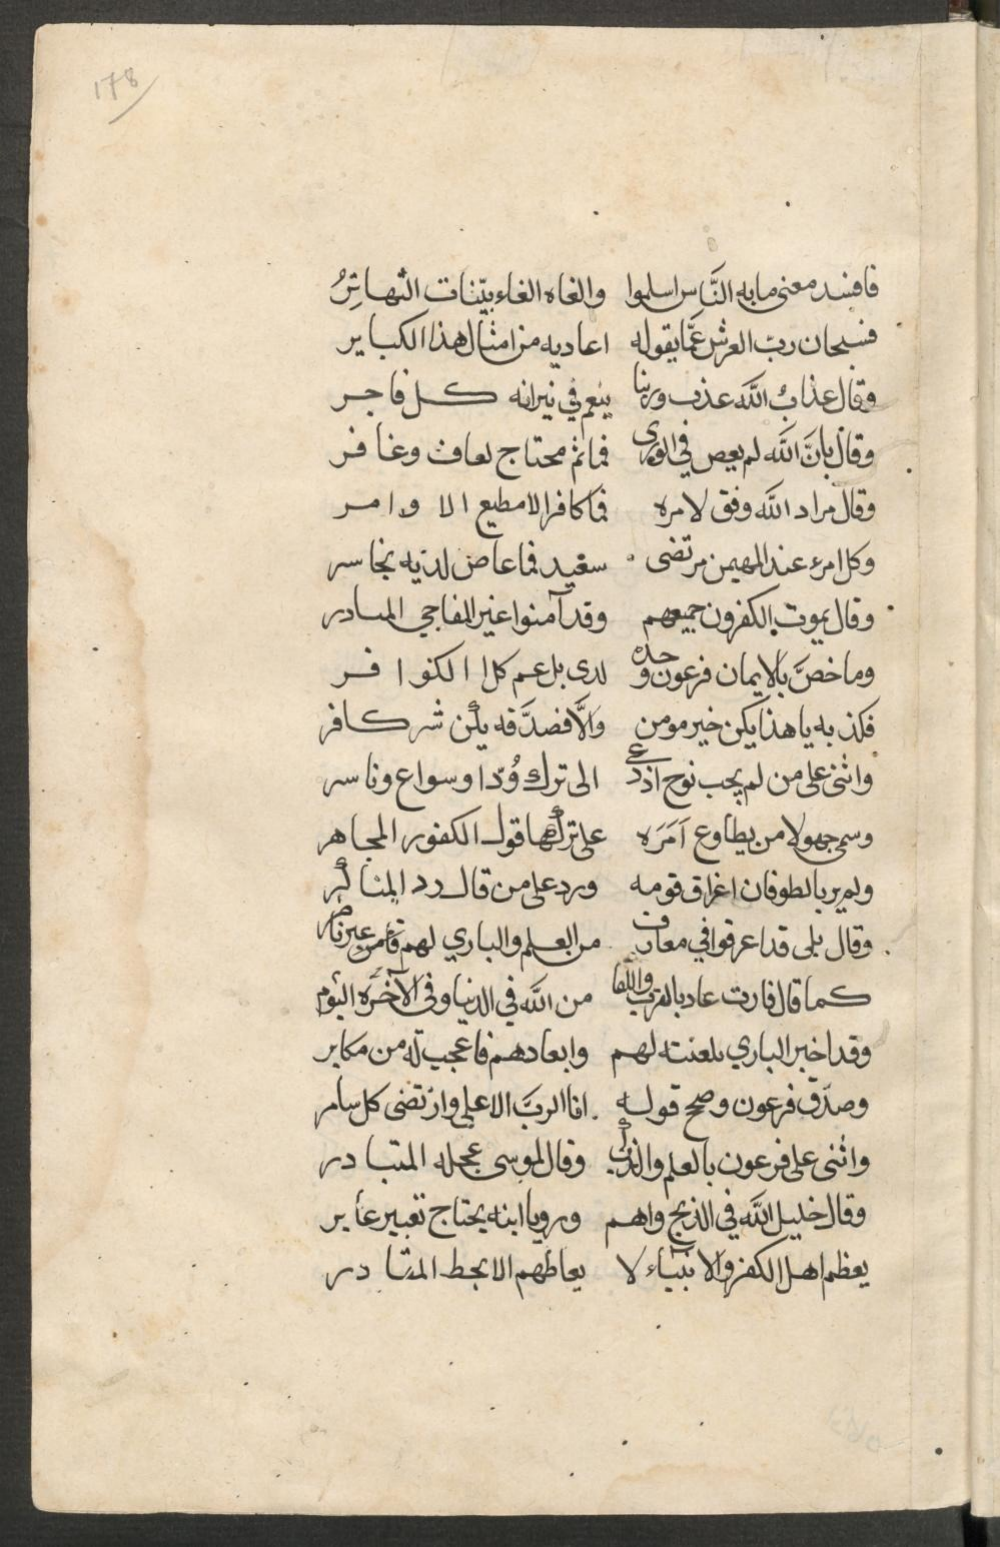 ١٧٨
فافسد معنى ما به الناس اسلموا والغاه الغاء بيّنات التهاتِرُ
فسبحان ربّ العرش عمّا يقوله اعاديه من امثال هذا الكباير
وقال عذابُ اللّه عذب وربنا ينعم في نيرانه كل فاجر
وقال بانَّ اللّه لم يعص في الورى فماثم محتاج لعاف وغافر
وقال مراد اللّه وفق لامره فما كافر الا مطيع الاوامر
وكل امرء عند المهيمن مرتضى سعيد فما عاص لديه بخاسر
وقال يموت الكفرون جميعهم وقد آمنوا غير المفاجي المبادر
وما خصّ بالايمان فرعون وحده لدى بل عم كل الكوافر
فكذبه يا هذا يكن خير مومن والّا فصدّقه يكن شر كافر
واثنى على من لم يجب نوح اذ دعى الى ترك وُدّا وسواع وناسر
وسمى جهولا من يطاوع اَمَرَه على تركها قول الكفور المجاهر
ولم ير بالطوفان اغراق قومه ورد على من قال رد المناكر
وقال بلى قد اغرقوا في معارف من العلم والباري لهم من خير ناصر
كما قال فازت عاد بالقرب واللقا من اللّه في الدنيا وفي الآخرة اليوم
وقد اخبر الباري بلعنته لهم وابعادهم فاعجب له من مكابر
وصدّق فرعون وصحح قوله انا الربّ الاعلى وارتضى كل سامر
واثنى على فرعون بالعلم والذكا وقال لموسى عجله المتبادر
وقال خليل اللّه في الذبح واهم ورويا ابنه يحتاج تعبير عابر
يعظم اهل الكفر والانبياء لا يعاملهم الا بحط المقادر